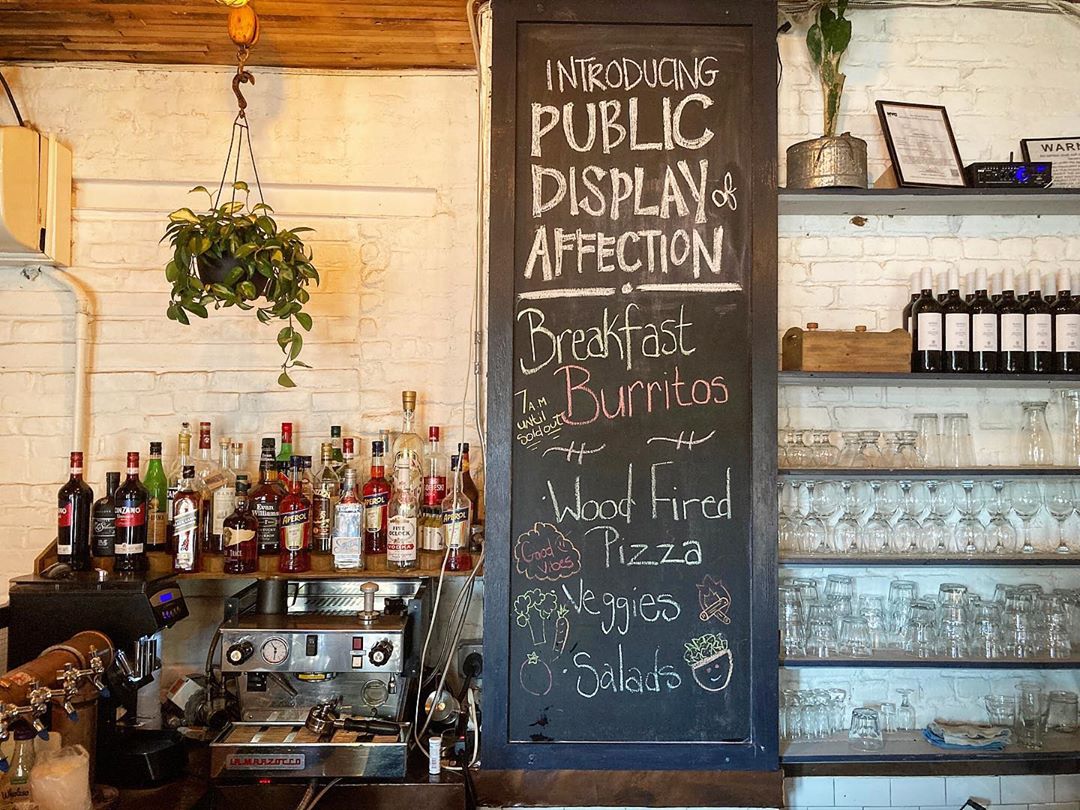 INTRODUCING
PUBLIC
DISPLAY of
AFFECTION
Breakfast
Burritos
7AM
until
Sold out!
Wood Fired
Pizza
Good
Vibes
Veggies
Salads
WARN
NYC
CINZANO
Evan
Williams
APEROL
APEROL
APEROL
FIVE
O'CLOCK
VODKA
LA MARZOCCO